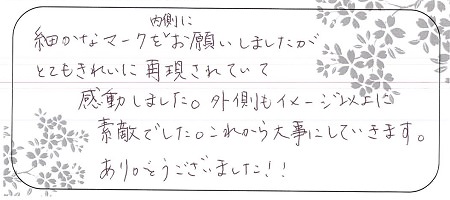 内側に
細かなマークをお願いしましたが
とてもきれいに再現されていて
感動しました。外側もイメージ以上に
素敵でした。これから大事にしていきます。
ありがとうございました!!